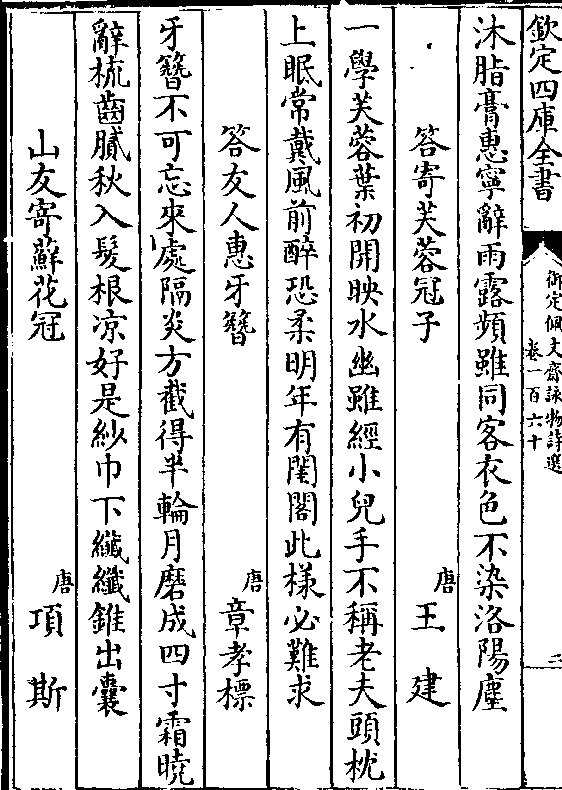 欽定四庫全書
御定佩文齋詠物詩選
卷一百六十
三
沐脂膏惠寧辭雨露頻雖同客衣色不染洛陽塵
答寄芙蓉冠子
唐
王建
一學芙蓉葉初開映水幽雖經小兒手不稱老夫頭枕
上眠常戴風前醉恐柔明年有閨閤此樣必難求
答友人惠牙簪
唐
章孝標
牙簪不可忘來處隔炎方截得半輪月磨成四寸霜曉
辭梳齒膩秋入髮根凉好是紗巾下纖纖錐出囊
山友寄蘚花冠
唐
項斯